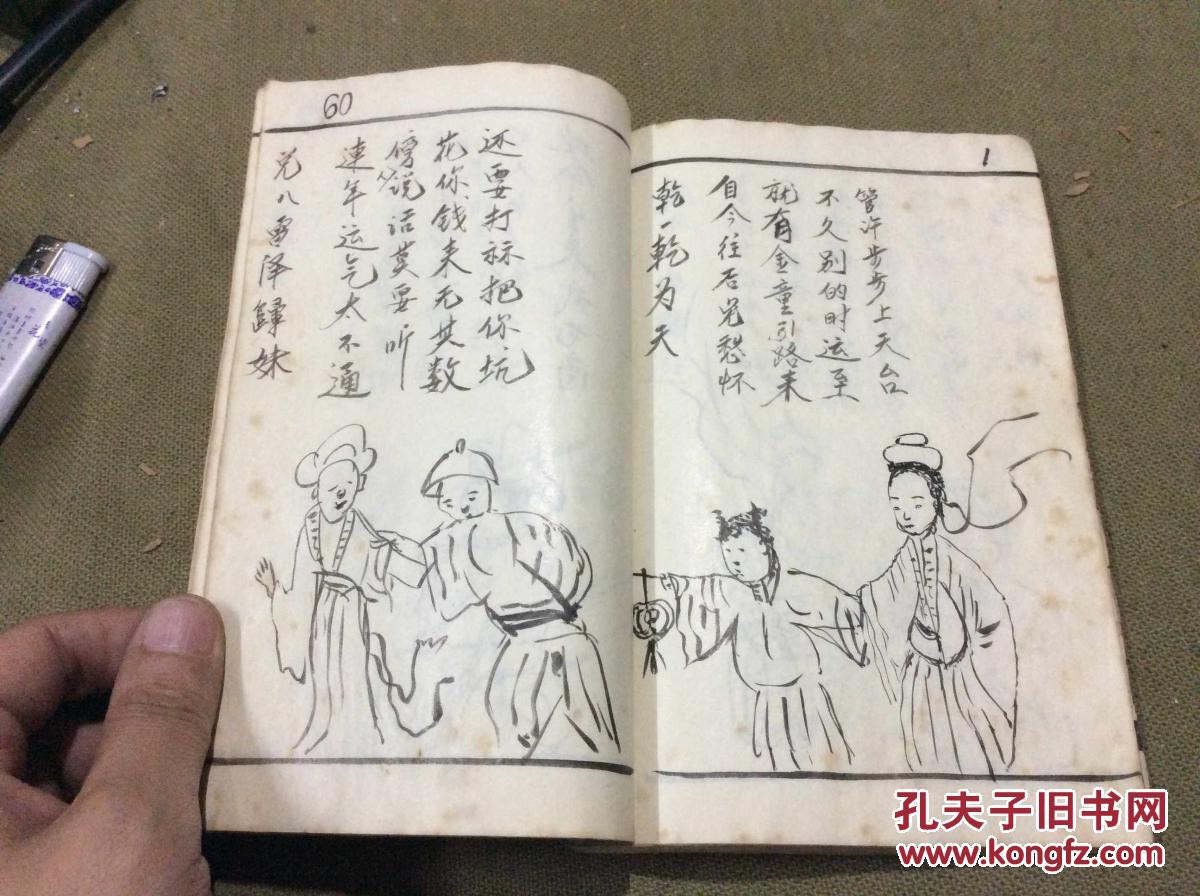 60
兑八雷泽歸妹
连年运气太不通
傍人说话莫要听
花你钱来无其数
还要打把你坑
1
乾一乾为天
自今往后免愁怀
就有金童引路来
不久别的时运至
管许步步上天台
孔夫子旧书网
www.kongfz.com